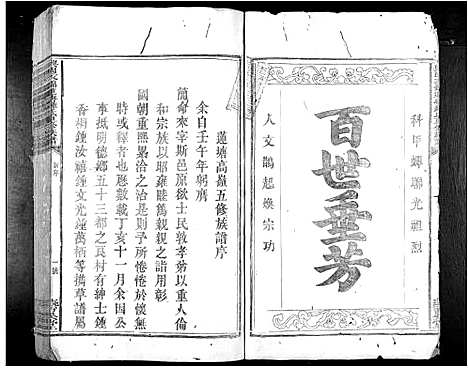 科甲蟬聯光祖烈
百世垂芳
人文鵲起煥宗功
蓮塘高嶺五修族譜序
余自壬午年躬膺
簡命來宰斯邑原欲士民敦孝弟以重人倫
國朝重熙累洽之治是則予所惓惓於懷無
昭雍睦篤萬親親之誼用彰
時或釋也歷數載丁亥十一月余因公
事抵明德鄉五十三都之艮村有紳士鍾
香楠鍾汝禧鍾文光鍾萬柄等攜草譜屬